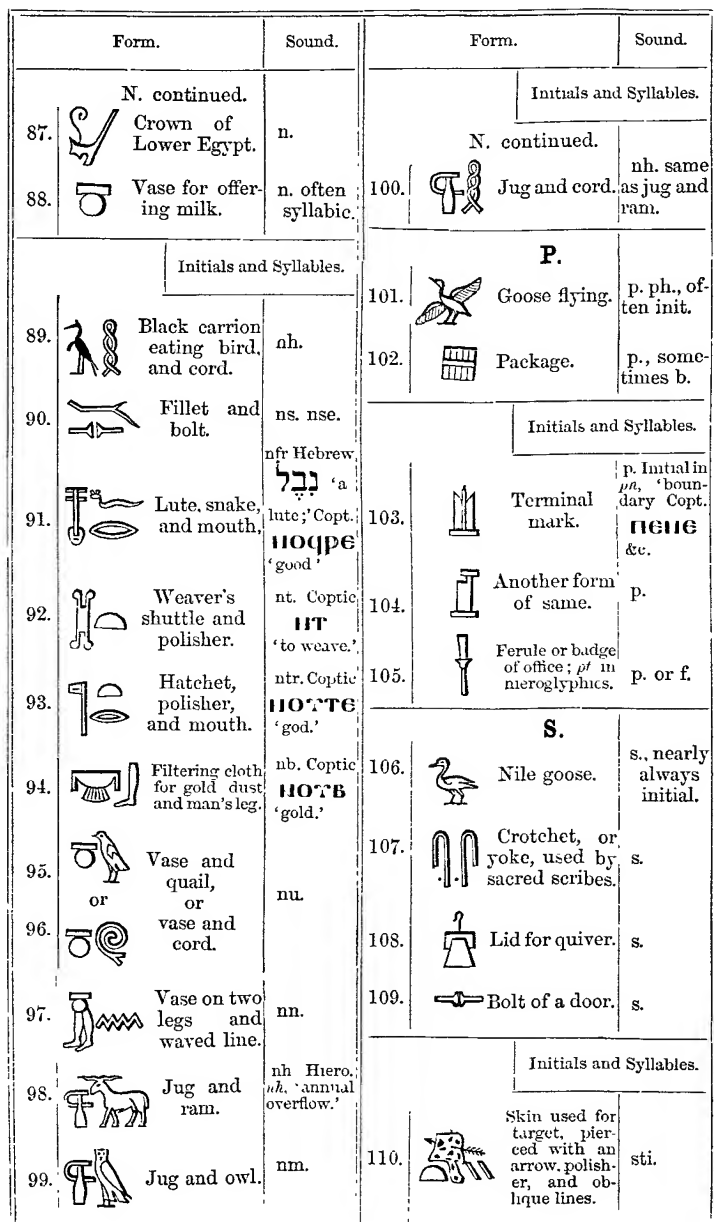 Form. Sound.
N. continued.
87. Crown of Lower Egypt. n.
88. Vase for offer-ing milk. n. often syllabic.
Initials and Syllables.
89. Black carrion eating bird, and cord. nh.
90. Fillet and bolt. ns. nse.
91. Lute, snake, and mouth, nfr Hebrew נִבֶל 'a lute;' Copt. ⲛⲟϥⲣⲉ 'good'
92. Weaver's shuttle and polisher. nt. Coptic ⲛⲧ 'to weave.'
93. Hatchet, polisher, and mouth. ntr. Coptic ⲛⲟⲩⲧⲉ 'god.'
94. Filtering cloth for gold dust and man's leg. nb. Coptic ⲛⲟⲩⲃ 'gold.'
95. Vase and quail,
or or nu.
96. vase and cord.
97. Vase on two legs and waved line. nn.
98. Jug and ram. nh Hiero. nh, 'annual overflow.'
99. Jug and owl. nm.
Form. Sound.
Initials and Syllables.
N. continued.
100. Jug and cord. nh. same as jug and ram.
P.
101. Goose flying. p. ph., of-ten init.
102. Package. p., some-times b.
Initials and Syllables.
103. Terminal mark. p. Initial in pn, 'boun-dary Copt. ⲡⲉⲛⲉ &c.
104. Another form of same. p.
105. Ferule or badge of office; pt in hieroglyphics. p. or f.
S.
106. Nile goose. s., nearly always initial.
107. Crotchet, or yoke, used by sacred scribes. s.
108. Lid for quiver. s.
109. Bolt of a door. s.
Initials and Syllables.
110. Skin used for target, pier-ced with an arrow, polish-er, and ob-lique lines. sti.